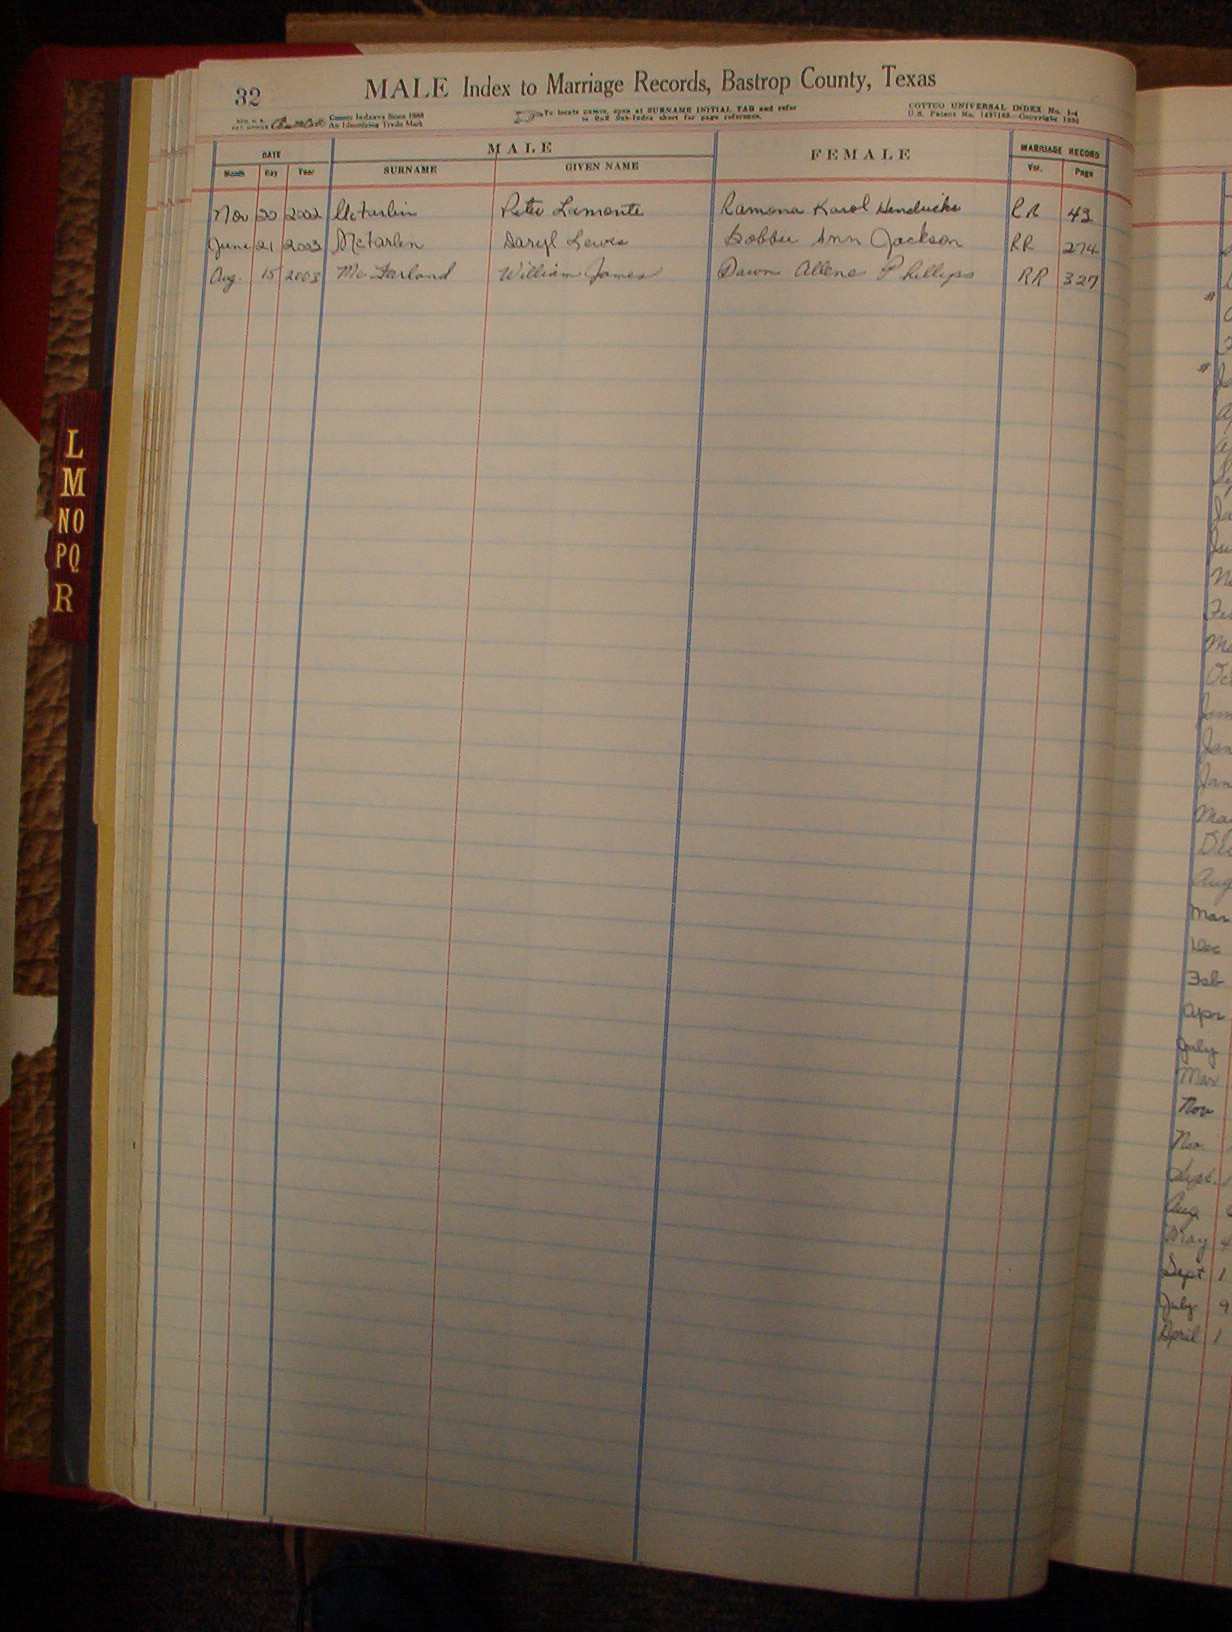 32
MALE Index to Marriage Records, Bastrop County, Texas
County Indexes Since 1888
An Identifying Trade Mark
To locate names, open at SURNAME INITIAL TAB and refer
to Sub-Index sheet for page reference.
COTTCO UNIVERSAL INDEX No. 1-4
U.S. Patent No. Copyright
DATE MALE FEMALE MARRIAGE RECORD
Month Day Year SURNAME GIVEN NAME Vol. Page
Nov 20 2002 McFarlin Peter Lamonte Ramona Karol Hendricks RR 43
June 21 2003 McFarlin Daryl Lewis Bobbie Ann Jackson RR 274
Aug. 15 2003 McFarland William James Dawn Allene Phillips RR 327
L
M
NO
PQ
R
Oct
Jan
Jan
Aug
Mar
Dec
Feb
Apr
July
Mar
Nov
Nov
Sept.
Aug
May 4
Sept 1
July 9
April 1